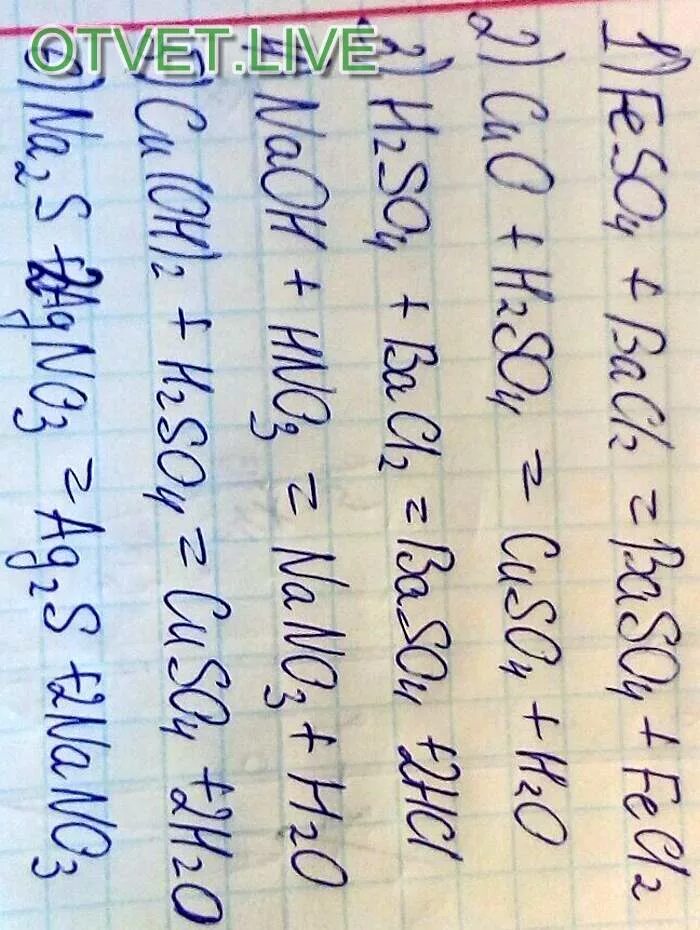 OTVET.LIVE
1) FeSO4 + BaCl2 = BaSO4 + FeCl2
2) CuO + H2SO4 = CuSO4 + H2O
3) H2SO4 + BaCl2 = BaSO4 + 2HCl
4) NaOH + HNO3 = NaNO3 + H2O
5) Cu(OH)2 + H2SO4 = CuSO4 + 2H2O
6) Na2S + 2AgNO3 = Ag2S + 2NaNO3